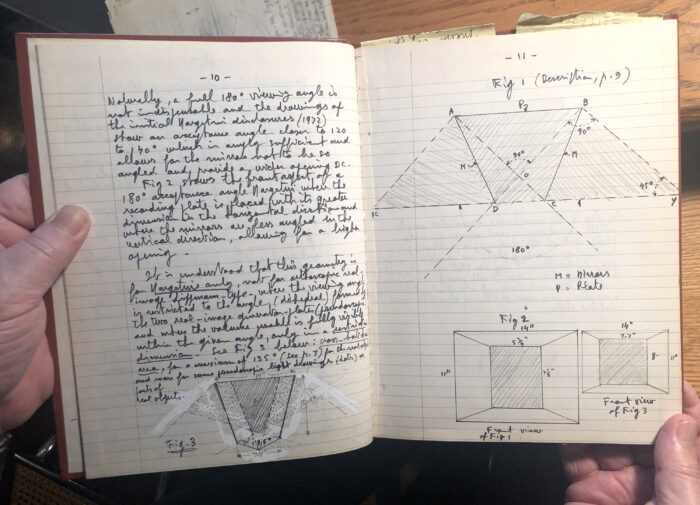 - 10 -
Naturally, a full 180° viewing angle is
not indispensable and the drawings of
the initial Margetrin disclosures (1972)
show an acceptance angle closer to 120
to 140° which is amply sufficient and
allows for the mirrors not to be so
angled and provide a wider opening DC.
Fig 2 shows the front aspect of a
180° acceptance angle Margetrin when the
recording plate is placed with its greater
dimension in the horizontal direction and
where the mirrors are less angled in the
vertical direction, allowing for a higher
opening.
It is understood that this geometry is
for Margetrins only, not for orthoscopic real-
image where the viewing angle
is restricted to the angle (dihedral) formed by
the two real-image generator plates (pseudoscopic)
and where the volume usable is fully visible
within the given angle, only in a restricted
dimension. See Fig 3 below: cross-hatched
area, for a maximum of 135° (see p. 7) for the real object
and more for some light drawings (dots) or
parts of
real objects.
Fig. 3
135°
- 11 -
Fig 1 (Description, p. 9)
A
P2
B
90°
M
90°
M
O
45°
X
D
C
Y
180°
M = Mirrors
P = Plate
Fig 2
14"
11"
Front view
of Fig 1
14"
7.7"
8"
11"
Front view
of Fig 3